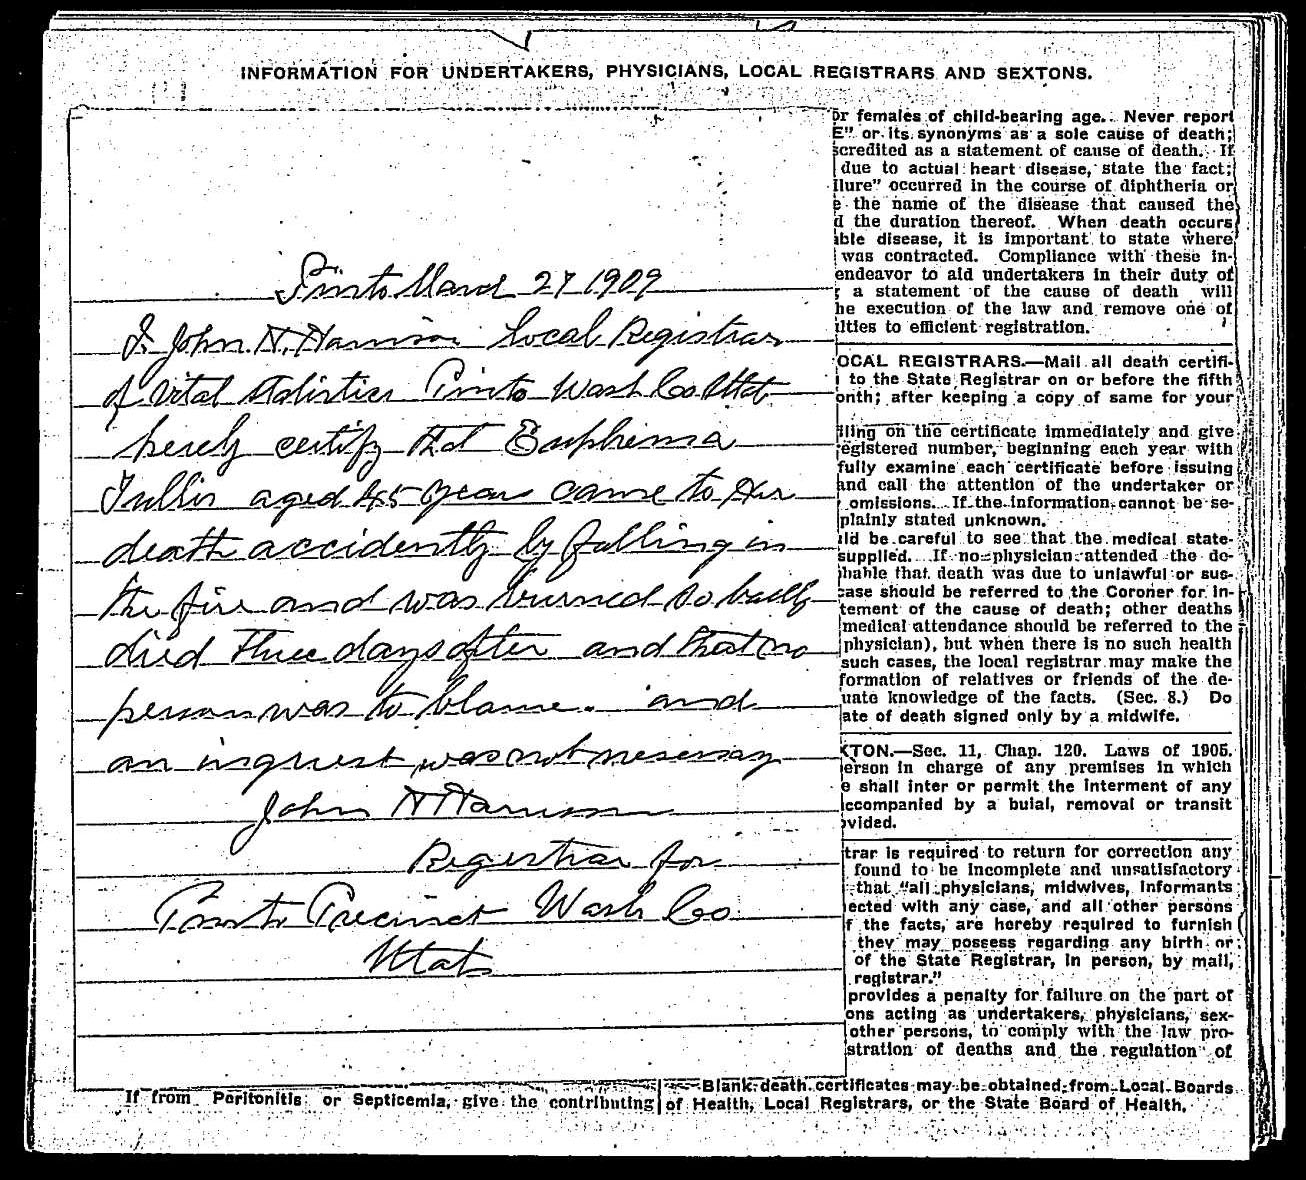 INFORMATION FOR UNDERTAKERS, PHYSICIANS, LOCAL REGISTRARS AND SEXTONS.
Pinto March 27 1909
I, John H. Harrison Local Registrar
of Vital Statistics Pinto Wash Co Utah
herely certify that Euphemia
Tullis aged 45 years came to Her
death accidently by falling in
the fire and was burned so badly
died three days after and that no
person was to blame. and
an inquest was not nesessay
John H Harrison
Registrar for
Pinto Precinct Wash Co
Utah
or females of child-bearing age. Never report
E" or its synonyms as a sole cause of death;
scredited as a statement of cause of death. If
due to actual heart disease, state the fact;
ilure" occurred in the course of diphtheria or
e the name of the disease that caused the
d the duration thereof. When death occurs
able disease, it is important to state where
was contracted. Compliance with these in-
endeavor to aid undertakers in their duty of
; a statement of the cause of death will
he execution of the law and remove one of
ilties to efficient registration.
OCAL REGISTRARS.—Mail all death certifi-
to the State Registrar on or before the fifth
onth; after keeping a copy of same for your
iling on the certificate immediately and give
egistered number, beginning each year with
fully examine each certificate before issuing
and call the attention of the undertaker or
omissions. If the information cannot be se-
plainly stated unknown.
ld be careful to see that the medical state-
supplied. If no physician attended the de-
bable that death was due to unlawful or sus-
case should be referred to the Coroner for in-
tement of the cause of death; other deaths
medical attendance should be referred to the
physician), but when there is no such health
such cases, the local registrar may make the
formation of relatives or friends of the de-
uate knowledge of the facts. (Sec. 8.) Do
ate of death signed only by a midwife.
XTON.—Sec. 11, Chap. 120. Laws of 1905.
erson in charge of any premises in which
e shall inter or permit the interment of any
ccompanied by a buial, removal or transit
ovided.
trar is required to return for correction any
found to be incomplete and unsatisfactory
that "all physicians, midwives, informants
ected with any case, and all other persons
f the facts, are hereby required to furnish
they may possess regarding any birth or
of the State Registrar, in person, by mail,
registrar."
provides a penalty for failure on the part of
ons acting as undertakers, physicians, sex-
other persons, to comply with the law pro-
stration of deaths and the regulation of
If from Peritonitis or Septicemia, give the contributing
Blank death certificates may be obtained from Local Boards
of Health, Local Registrars, or the State Board of Health.